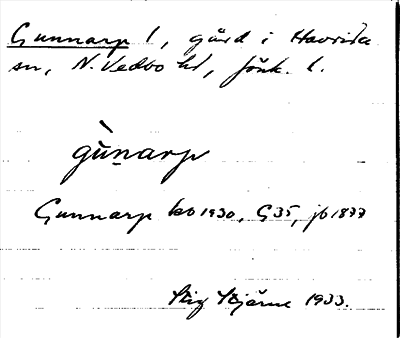 Gunnarp 1, gård i Haurida
sn, N. Vedbo hd, Jönk. l.
gùn̲arp
Gunnarp ko 1930, G35, jb 1877
Stig Stjärne 1933.